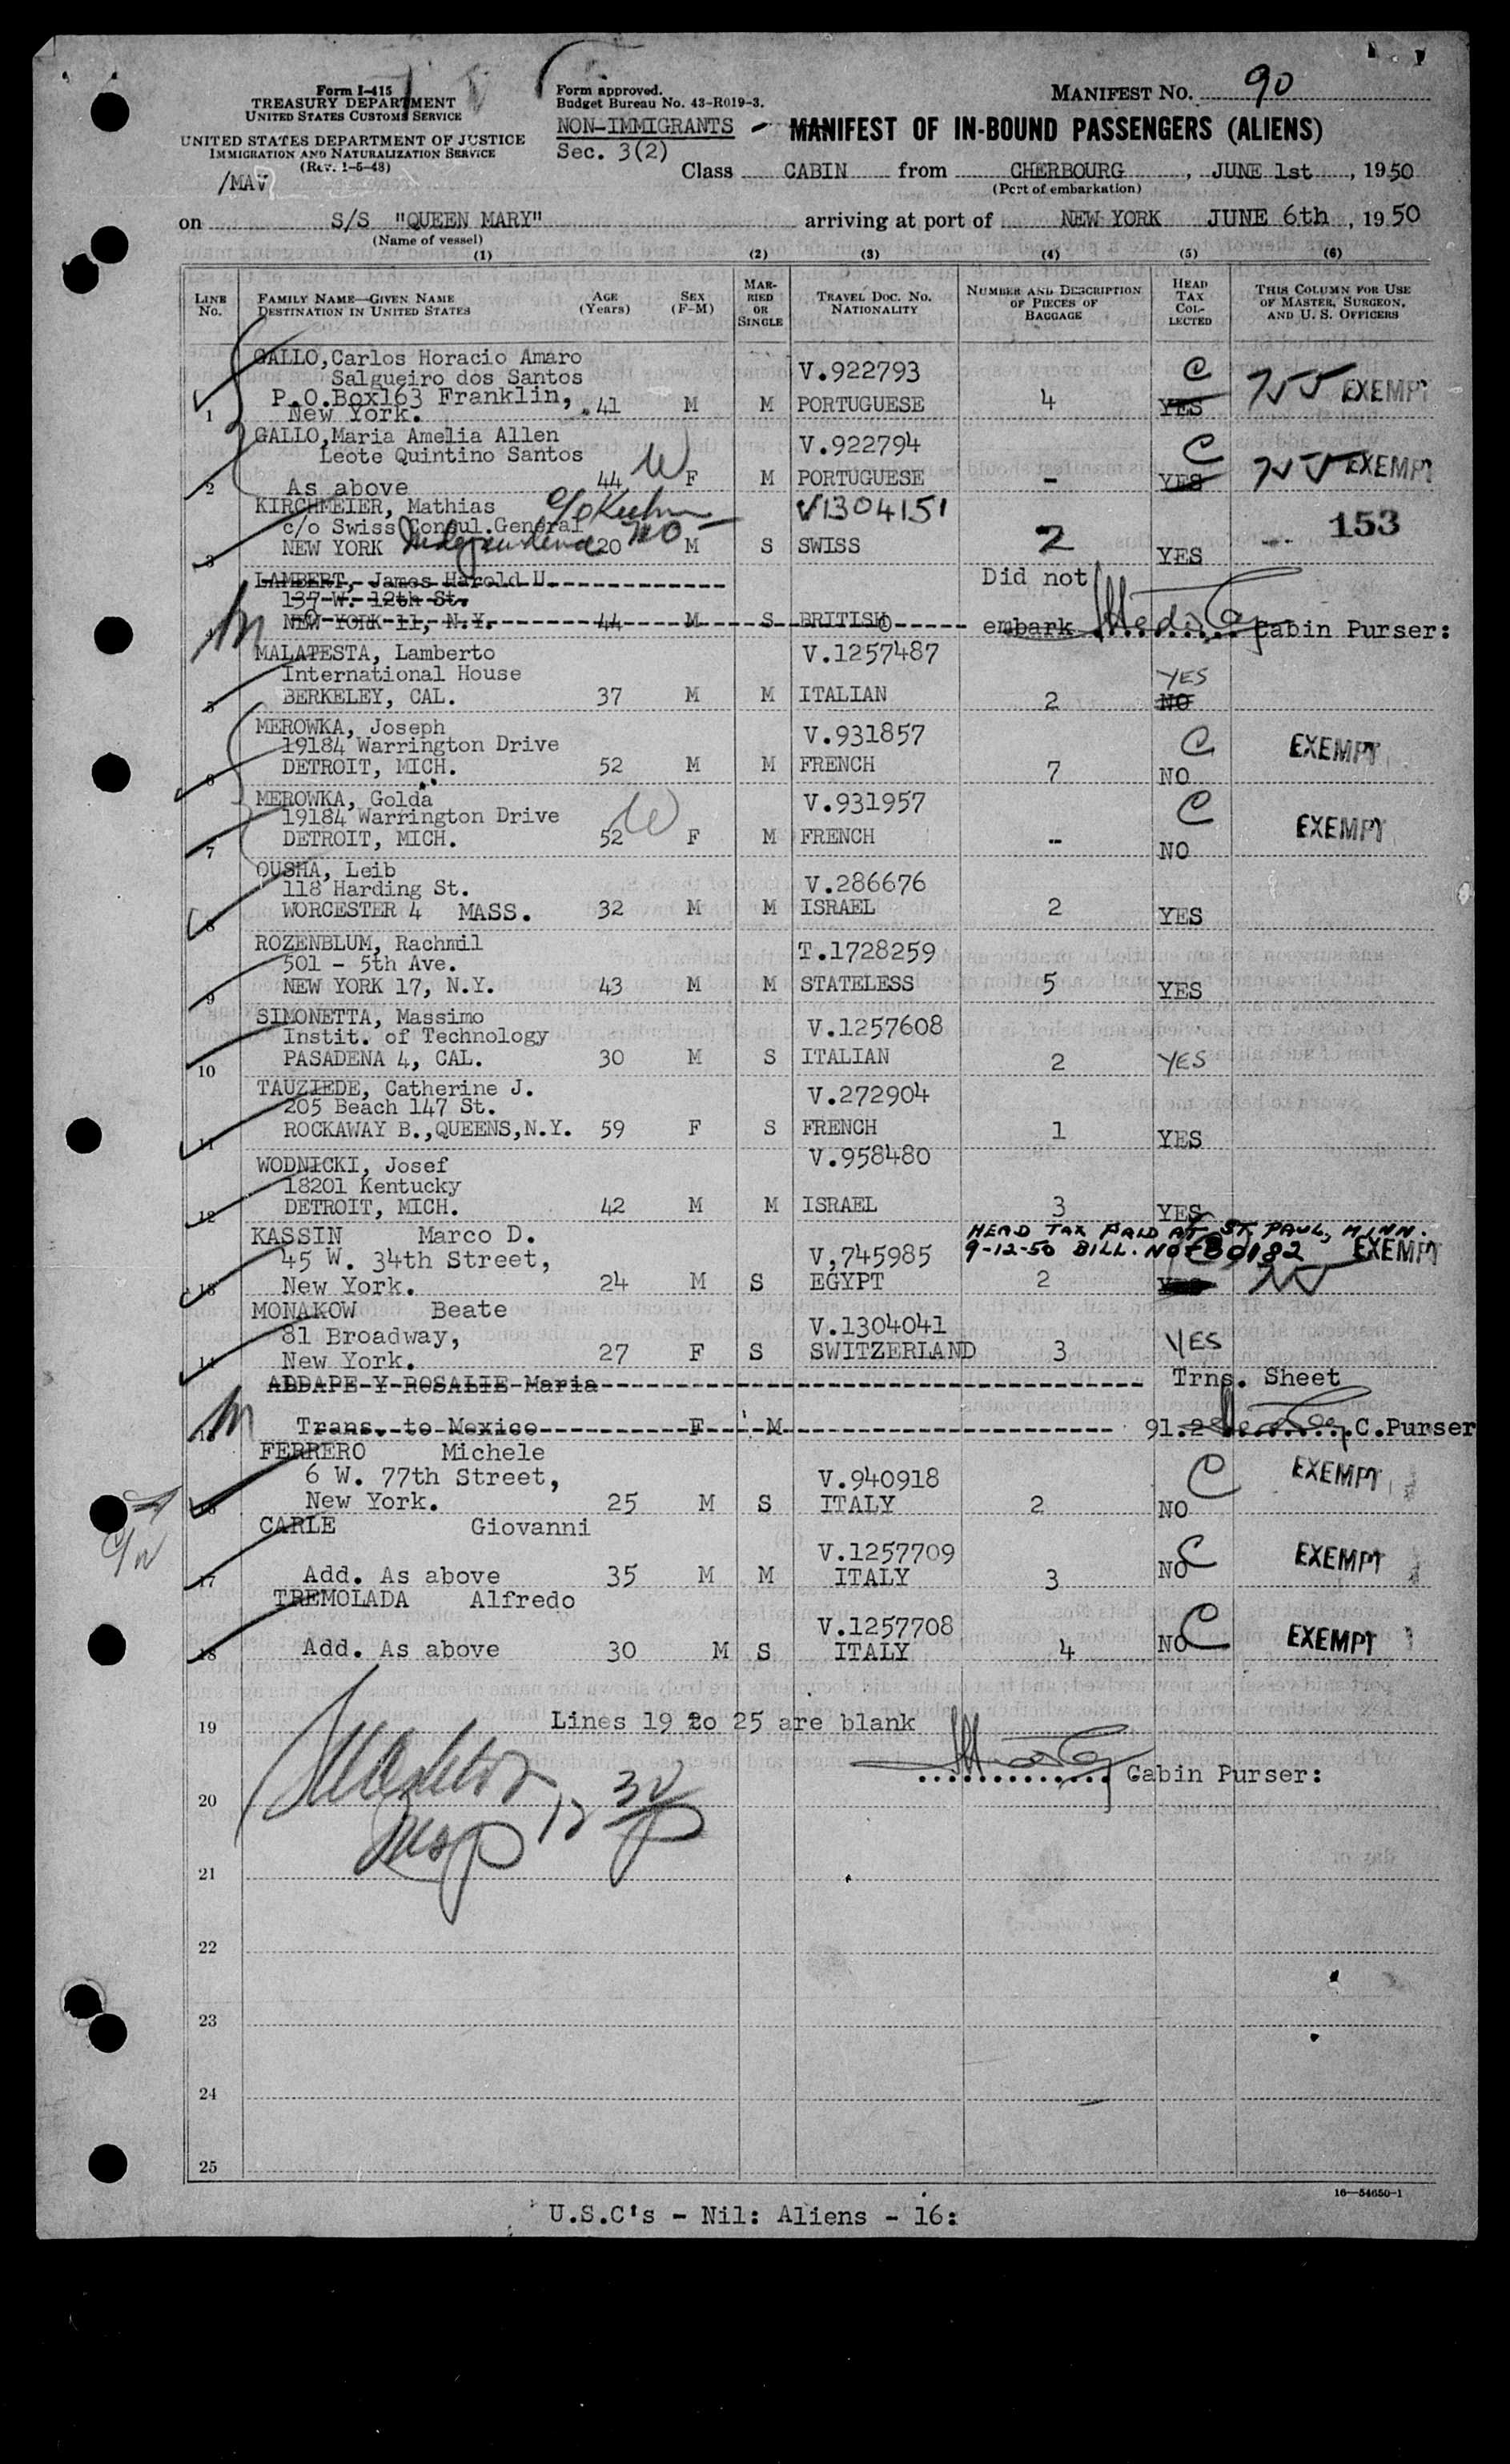 Form I-415
TREASURY DEPARTMENT
UNITED STATES CUSTOMS SERVICE
UNITED STATES DEPARTMENT OF JUSTICE
IMMIGRATION AND NATURALIZATION SERVICE
(Rev. 1-5-48)
/MAV
Form approved.
Budget Bureau No. 43-R019-3.
NON-IMMIGRANTS
Sec. 3(2)
MANIFEST NO. 90
- MANIFEST OF IN-BOUND PASSENGERS (ALIENS)
Class CABIN from CHERBOURG, JUNE 1st, 1950
(Port of embarkation)
on S/S "QUEEN MARY" arriving at port of NEW YORK JUNE 6th, 1950
(Name of vessel)
(1) (2) (3) (4) (5) (6)
LINE No. FAMILY NAME—GIVEN NAME DESTINATION IN UNITED STATES AGE (Years) SEX (F-M) MARRIED OR SINGLE TRAVEL DOC. NO. NATIONALITY NUMBER AND DESCRIPTION OF PIECES OF BAGGAGE HEAD TAX COLLECTED THIS COLUMN FOR USE OF MASTER, SURGEON, AND U. S. OFFICERS
GALLO, Carlos Horacio Amaro V.922793 C
Salgueiro dos Santos
P.O.Box163 Franklin, EXEMPT
1 New York. 41 M M PORTUGUESE 4 YES
GALLO, Maria Amelia Allen V.922794 C
Leote Quintino Santos W EXEMPT
2 As above 44 F M PORTUGUESE - YES
KIRCHMEIER, Mathias c/o Kuhn V1304151
c/o Swiss Consul.General 153
3 NEW YORK Independence MO 20 M S SWISS 2 YES
LAMBERT, James Harold U. Did not
137 W. 12th St.
4 NEW YORK 11, N.Y. 44 M S BRITISH embark Cabin Purser:
MALATESTA, Lamberto V.1257487
International House YES
5 BERKELEY, CAL. 37 M M ITALIAN 2 NO
MEROWKA, Joseph V.931857
19184 Warrington Drive C EXEMPT
6 DETROIT, MICH. 52 M M FRENCH 7 NO
MEROWKA, Golda V.931957 C
19184 Warrington Drive W EXEMPT
7 DETROIT, MICH. 52 F M FRENCH - NO
OUSHA, Leib V.286676
118 Harding St.
8 WORCESTER 4 MASS. 32 M M ISRAEL 2 YES
ROZENBLUM, Rachmil T.1728259
501 - 5th Ave.
9 NEW YORK 17, N.Y. 43 M M STATELESS 5 YES
SIMONETTA, Massimo V.1257608
Instit. of Technology
10 PASADENA 4, CAL. 30 M S ITALIAN 2 YES
TAUZIEDE, Catherine J. V.272904
205 Beach 147 St.
11 ROCKAWAY B.,QUEENS,N.Y. 59 F S FRENCH 1 YES
WODNICKI, Josef V.958480
18201 Kentucky
12 DETROIT, MICH. 42 M M ISRAEL 3 YES
KASSIN Marco D. HEAD TAX PAID AT ST. PAUL, MINN.
45 W. 34th Street, V,745985 9-12-50 BILL. NO EXEMPT
13 New York. 24 M S EGYPT 2 YES
MONAKOW Beate V.1304041
81 Broadway,
14 New York. 27 F S SWITZERLAND 3 YES
ABDAPE Y ROSALIE Maria Trns. Sheet
15 Trans. to Mexico F M 91.2 C.Purser
FERRERO Michele C EXEMPT
6 W. 77th Street, V.940918
16 New York. 25 M S ITALY 2 NO
CARLE Giovanni V.1257709 C EXEMPT
17 Add. As above 35 M M ITALY 3 NO
TREMOLADA Alfredo V.1257708 C EXEMPT
18 Add. As above 30 M S ITALY 4 NO
19 Lines 19 to 25 are blank
Cabin Purser:
20
21
22
23
24
25
16—54650-1
U.S.C's - Nil: Aliens - 16: